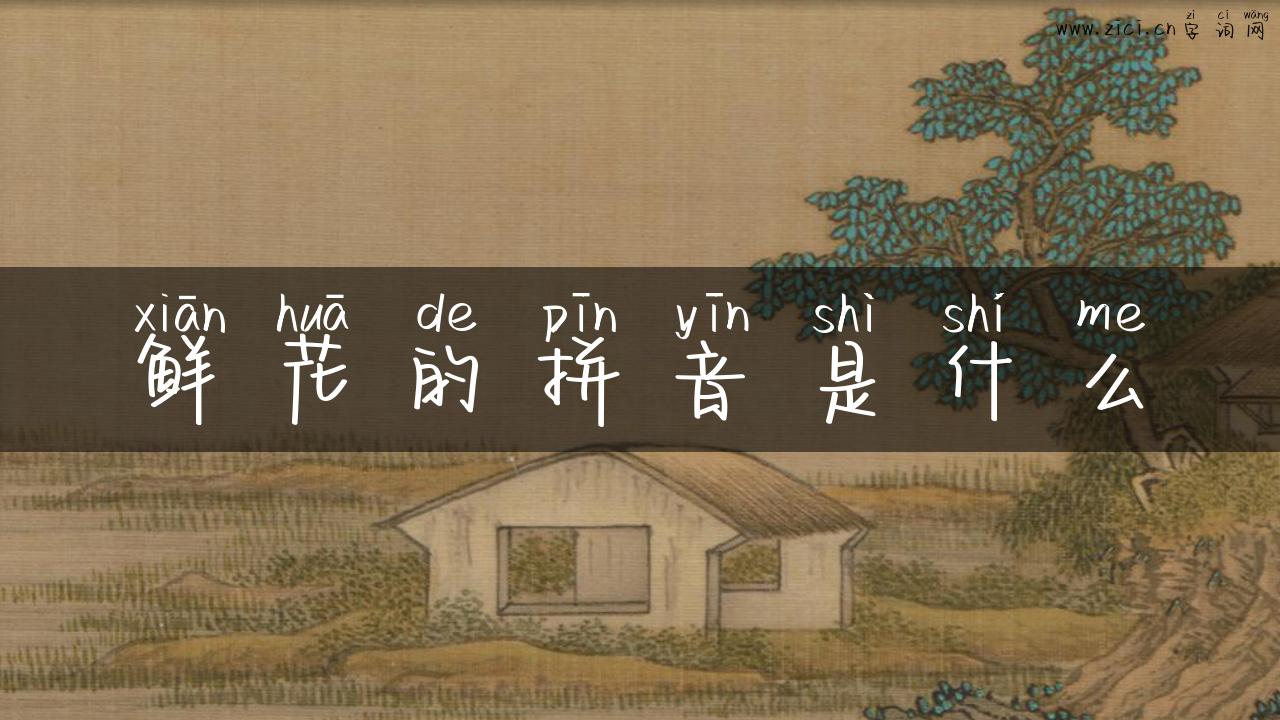 zì cí wǎng
www.zici.cn 字词网
xiān huā de pīn yīn shì shí me
鲜花的拼音是什么